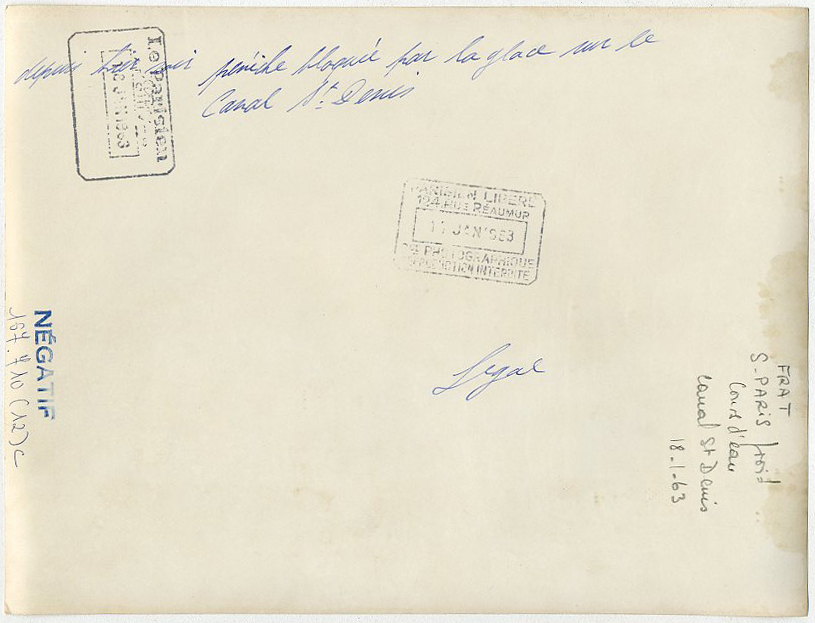 depuis hier soir péniche bloquée par la glace sur le
Canal St Denis
Le Parisien
18 JAN 1963
PARISIEN LIBERE
124, RUE RÉAUMUR
JAN 1963
PHOTOGRAPHIQUE
INTERDITE
Legal
NÉGATIF
167.710 (12) c
FRAT
S-PARIS froid
Cours d'eau
Canal St Denis
18-1-63